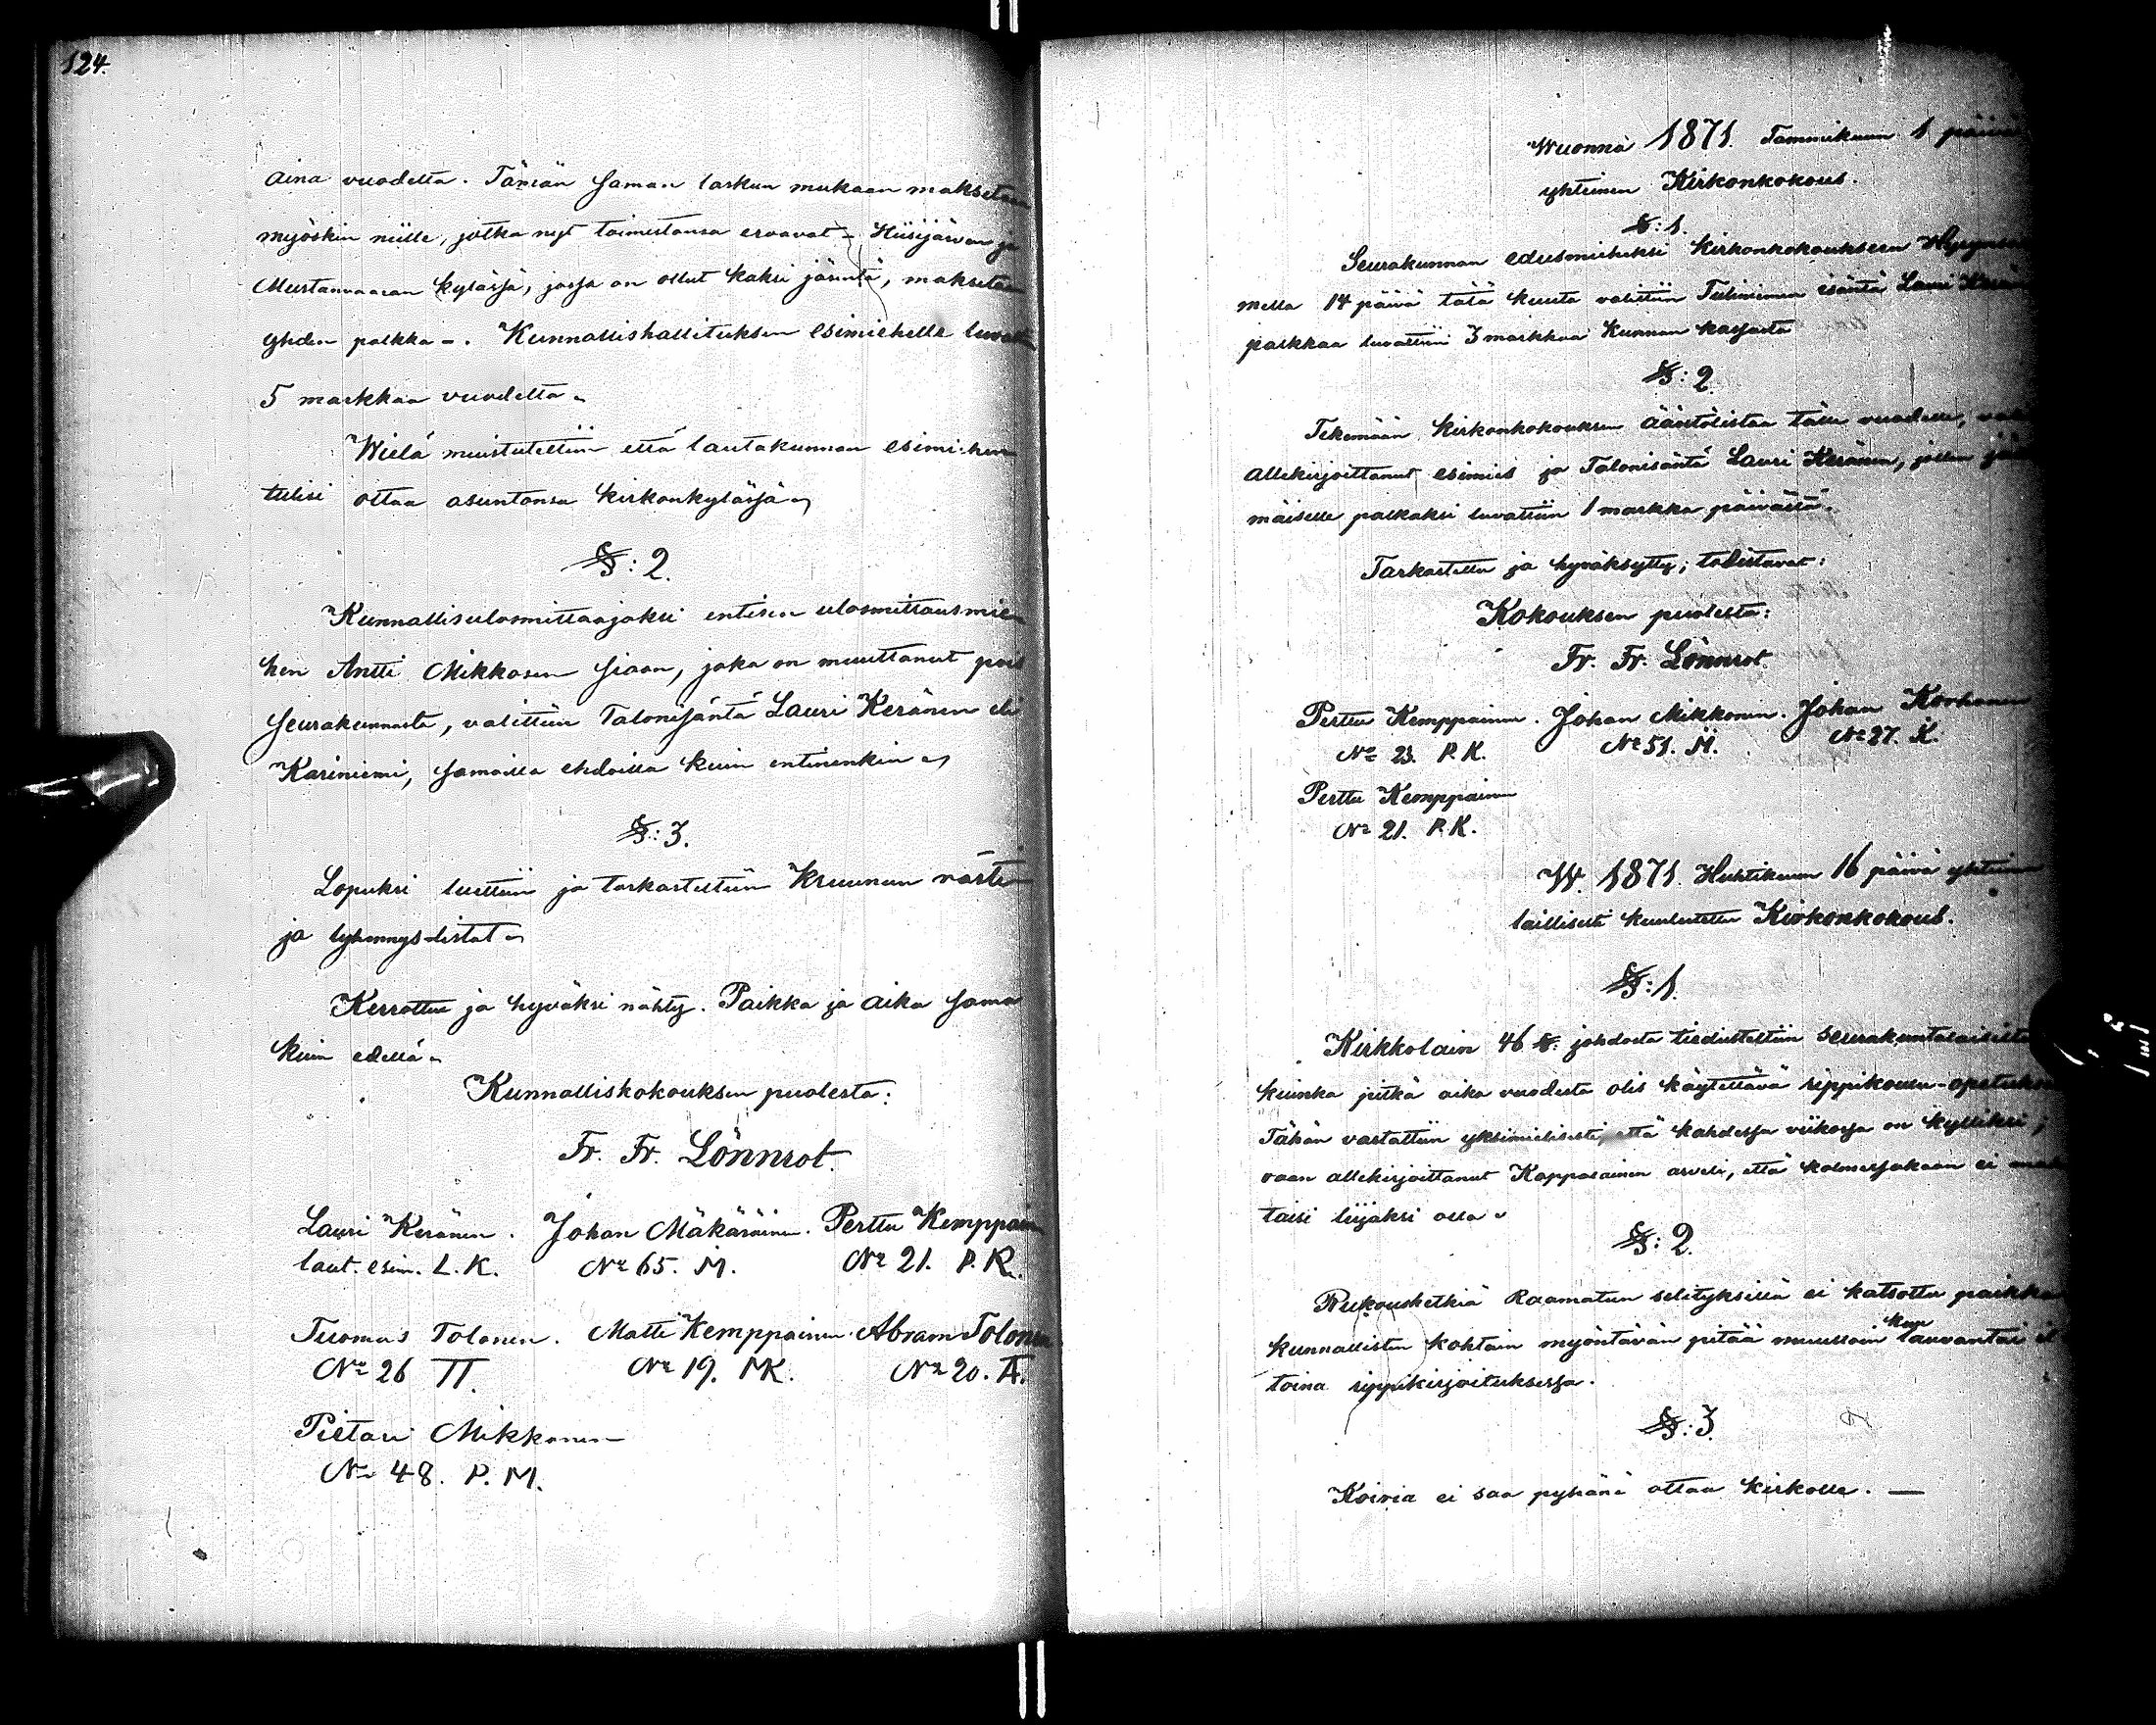 124.
aina vuodelta. Tämän saman laskun mukaan maksetaan
myöskin niille, jotka nyt toimestansa eroavat – Hiisijärven ja
Mustanvaaran kylässä, jossa on ollut kaksi jäsentä, maksetaan
yhden palkka –. Kunnallishallituksen esimiehelle luvattiin
5 markkaa vuodelta.
Wielä muistutettiin että lautakunnan esimiehen
tulisi ottaa asuntonsa kirkonkylässä.
§: 2.
Kunnallisulosmittaajaksi entisen ulosmittausmie-
hen Antti Mikkosen siaan, joka on muuttanut pois
seurakunnasta, valittiin Talonisäntä Lauri Keränen eli
Kariniemi, samoilla ehdoilla kuin entinenkin.
§: 3.
Lopuksi luettiin ja tarkastettiin Kruunun rästi-
ja lyhennys-listat.
Kerrottu ja hyväksi nähty. Paikka ja aika sama
kuin edellä.
Kunnalliskokouksen puolesta:
Fr. Fr. Lönnrot.
Lauri Keränen. Johan Mäkäräinen. Perttu Kemppainen
laut. esim. L. K. № 65. M. № 21. P. K.
Tuomas Tolonen. Matti Kemppainen. Abram Tolonen
№ 26 TT. № 19. MK. № 20. A.
Pietari Mikkonen
№ 48. P. M.
Wuonna 1871. Tammikuun 1 päivä
yhteinen Kirkonkokous.
§: 1.
Seurakunnan edusmieheksi kirkonkokoukseen
mella 14 päivä tätä kuuta valittiin isäntä Lauri
palkkaa luvattiin 3 markkaa Kunnan kassasta
§: 2
Tekemään kirkonkokouksen ääntölistaa tälle vuodelle,
allekirjoittanut esimies ja Talonisäntä Lauri Keränen, jollen
mäiselle palkaksi luvattiin 1 markka päivältä.
Tarkastettu ja hyväksytty; todistavat:
Kokouksen puolesta:
Fr. Fr. Lönnrot.
Perttu Kemppainen. Johan Mikkonen. Johan Korhonen
№ 23. P. K. № 51. M. № 27. K.
Perttu Kemppainen
№ 21. P. K.
W. 1871. Huhtikuun 16 päivä yhteinen
laillisesti kuulutettu Kirkonkokous.
§: 1.
Kirkkolain 46 §: johdosta tiedusteltiin seurakuntalaisilta
kuinka pitkä aika vuodesta olis käytettävä rippikoulu-opetukseen
Tähän vastattiin yksimielisesti, että kahdessa viikossa on kylliksi;
vaan allekirjoittanut Kappalainen arveli, että kolmessakaan ei
taisi liijaksi olla.
§: 2.
Rukoushetkiä Raamatun selityksillä ei katsottu
kunnallisten kohtain myöntävän pitää muulloin kun lauvantai
toina rippikirjoituksessa.
§: 3.
Koiria ei saa pyhänä ottaa kirkolle. —